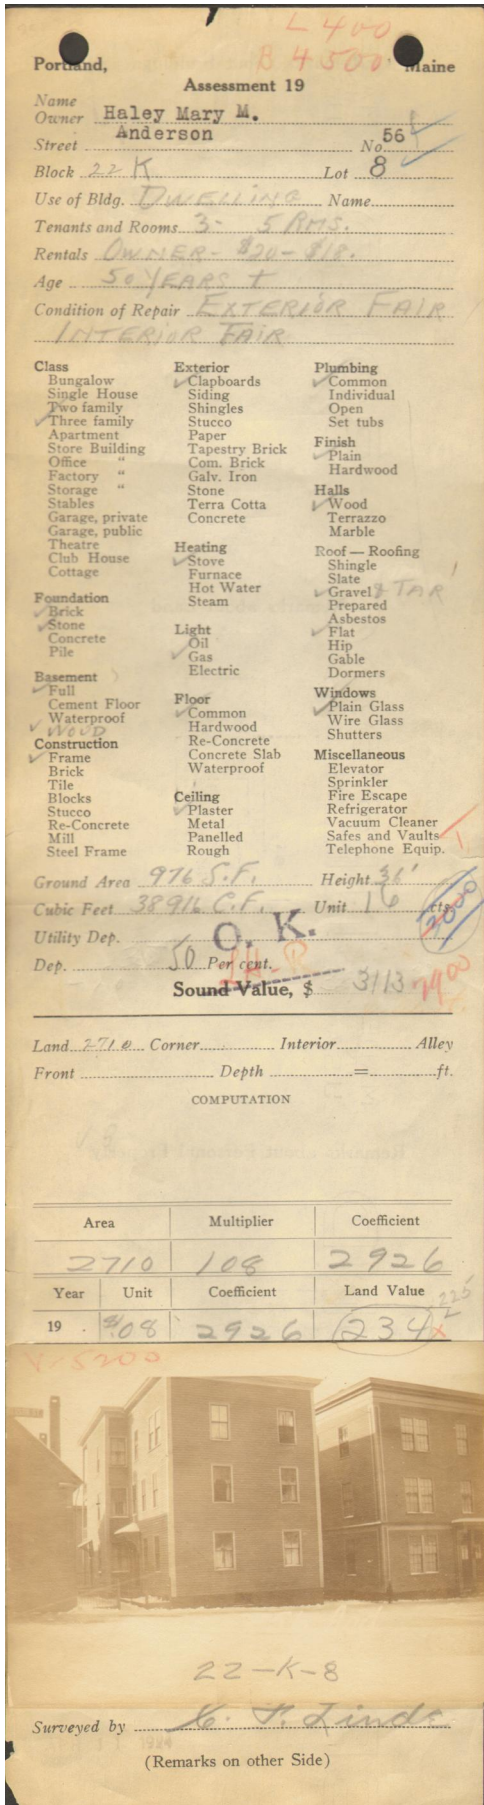 L 400
B 4500
Portland, Maine
Assessment 19
Name
Owner Haley Mary M.
Street Anderson No 56
Block 22 K Lot 8
Use of Bldg. DWELLING Name
Tenants and Rooms 3- 5 RMS.
Rentals OWNER- $20- $18.
Age 50 YEARS +
Condition of Repair EXTERIOR FAIR
INTERIOR FAIR
Class
Bungalow
Single House
Two family
Three family
Apartment
Store Building
Office "
Factory "
Storage "
Stables
Garage, private
Garage, public
Theatre
Club House
Cottage
Foundation
Brick
Stone
Concrete
Pile
Basement
Full
Cement Floor
Waterproof
WOOD
Construction
Frame
Brick
Tile
Blocks
Stucco
Re-Concrete
Mill
Steel Frame
Exterior
Clapboards
Siding
Shingles
Stucco
Paper
Tapestry Brick
Com. Brick
Galv. Iron
Stone
Terra Cotta
Concrete
Heating
Stove
Furnace
Hot Water
Steam
Light
Oil
Gas
Electric
Floor
Common
Hardwood
Re-Concrete
Concrete Slab
Waterproof
Ceiling
Plaster
Metal
Panelled
Rough
Plumbing
Common
Individual
Open
Set tubs
Finish
Plain
Hardwood
Halls
Wood
Terrazzo
Marble
Roof — Roofing
Shingle
Slate
Gravel & TAR
Prepared
Asbestos
Flat
Hip
Gable
Dormers
Windows
Plain Glass
Wire Glass
Shutters
Miscellaneous
Elevator
Sprinkler
Fire Escape
Refrigerator
Vacuum Cleaner
Safes and Vaults
Telephone Equip.
Ground Area 976 S.F. Height 36'
Cubic Feet 38916 C.F. Unit 16 cts.
Utility Dep. O. K.
Dep. 50 Per cent.
Sound Value, $ 3113
Land 2710 Corner Interior Alley
Front Depth = ft.
COMPUTATION
Area Multiplier Coefficient
2710 108 2926
Year Unit Coefficient Land Value
19 . 8/.08 2926 234
225
5200
22-K-8
Surveyed by
1924
(Remarks on other Side)